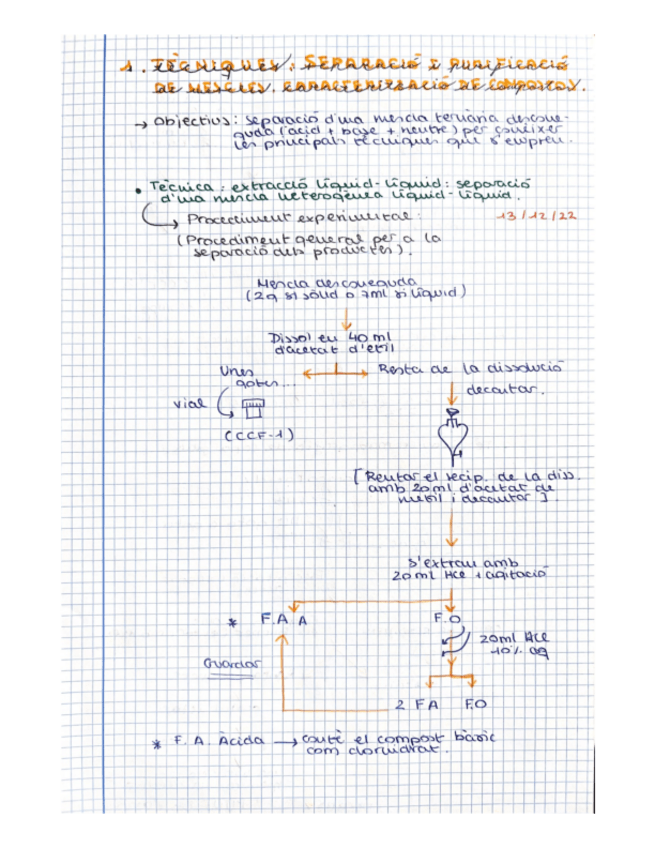 1. TÈCNIQUES: SEPARACIÓ I PURIFICACIÓ
DE MESCLES. CARACTERITZACIÓ DE COMPOSTOS.
→ Objectius: separació d'una mescla ternària descone-
guda (àcid + base + neutre) per conèixer
les principals tècniques que s'empren.
• Tècnica: extracció líquid-líquid: separació
d'una mescla heterogènea líquid-líquid.
Procediment experimental: 13/12/22
(Procediment general per a la
separació dels productes).
Mescla desconeguda
(2g si sòlid o 7ml si líquid)
Dissol en 40 ml
d'acetat d'etil
Unes
gotes...
Resta de la dissolució
decantar.
vial
(CCF-1)
[Rentar el recip. de la diss.
amb 20ml d'acetat de
metil i decantar]
S'extrau amb
20ml HCl + agitació
* F.A A F.O
20ml HCl
10% aq
Guardar
2 FA F.O
* F.A. Àcida → conté el compost bàsic
com clorhidrat.